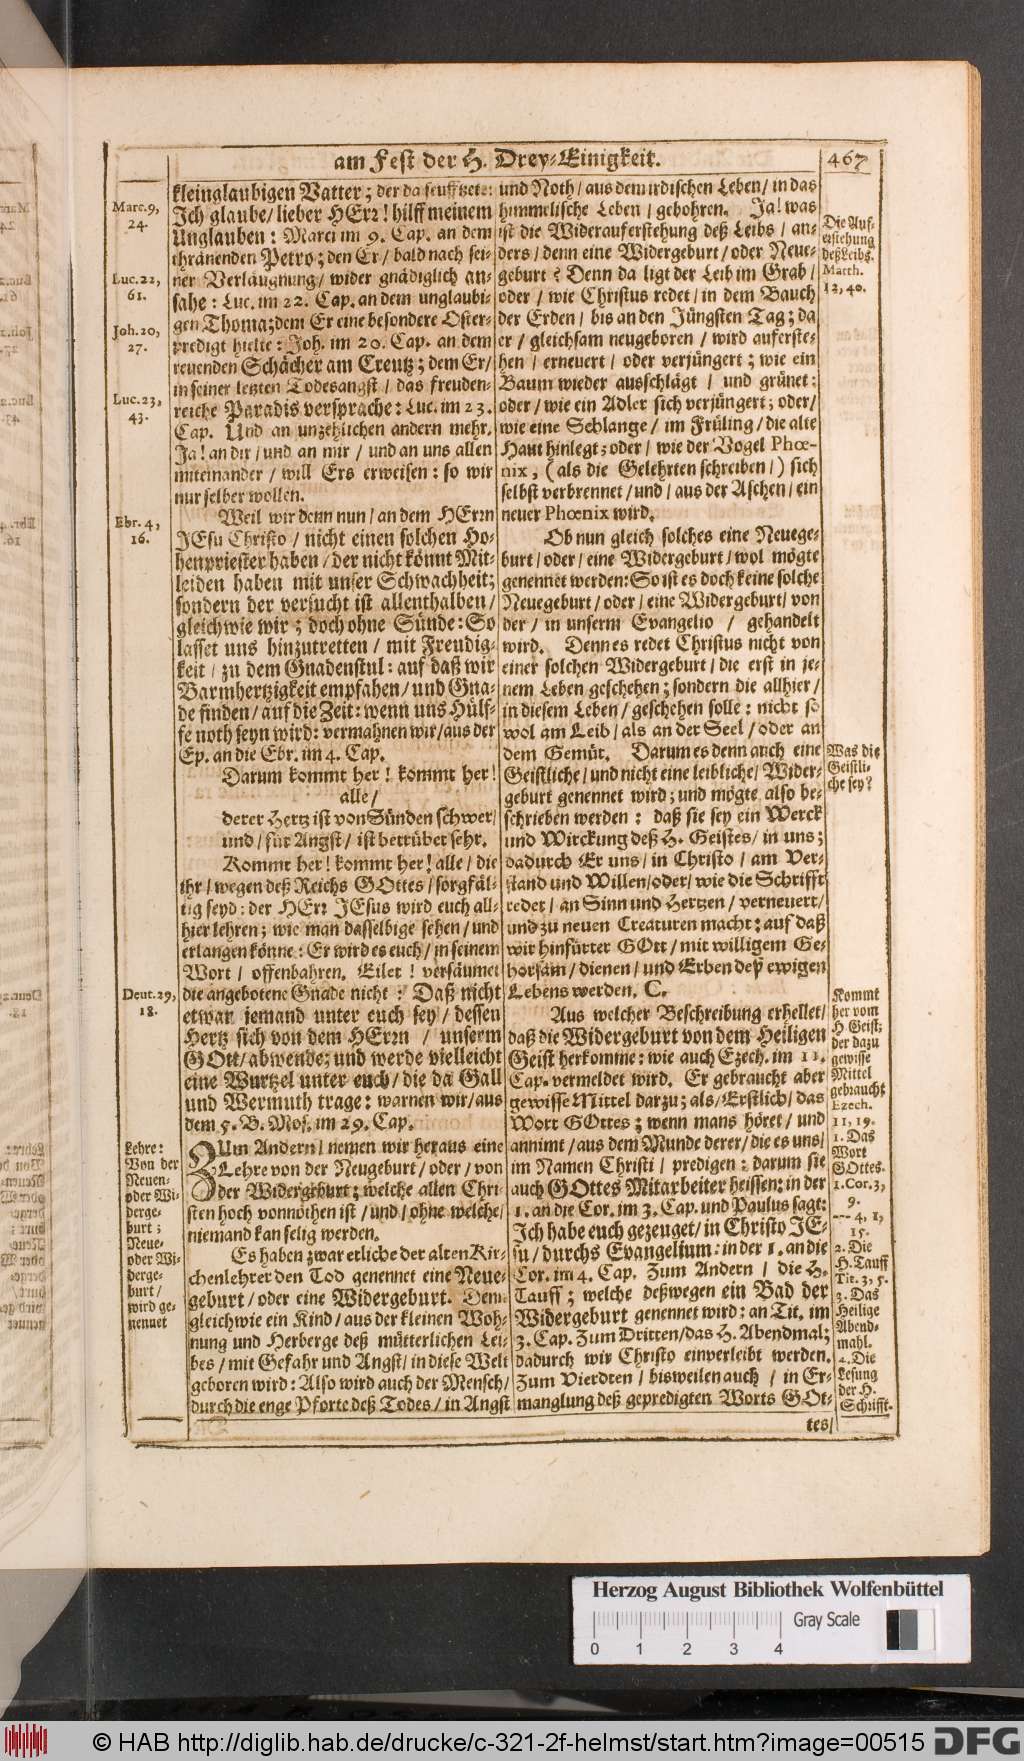 am Fest der H. Drey-Einigkeit.
467
kleinglaubigen Vatter; der da seufftzete:
Ich glaube/ lieber HErr! hilff meinem
Unglauben: Marci im 9. Cap. an dem
thränenden Petro; den Er/ bald nach sei-
ner Verläugnung/ wider gnädiglich an-
sahe: Luc. im 22. Cap. an dem unglaubi-
gen Thoma; dem Er eine besondere Oster-
predigt hielte: Joh. im 20. Cap. an dem
reuenden Schächer am Creutz; dem Er/
in seiner letzten Todesangst/ das freuden-
reiche Paradis versprache: Luc. im 23.
Cap. Und an unzehlichen andern mehr.
Ja! an dir/ und an mir/ und an uns allen
miteinander/ will Ers erweisen: so wir
nur selber wollen.
Weil wir denn nun/ an dem HErrn
JEsu Christo/ nicht einen solchen Ho-
henpriester haben/ der nicht könnt Mit-
leiden haben mit unser Schwachheit;
sondern der versucht ist allenthalben/
gleich wie wir; doch ohne Sünde: So
lasset uns hinzutretten/ mit Freudig-
keit/ zu dem Gnadenstul: auf daß wir
Barmhertzigkeit empfahen/ und Gna-
de finden/ auf die Zeit: wenn uns Hülf-
fe noth seyn wird: vermahnen wir/ aus der
Ep. an die Ebr. im 4. Cap.
Darum kommt her! kommt her!
alle/
derer Hertz ist von Sünden schwer/
und/ für Angst/ ist betrübet sehr.
Kommt her! kommt her! alle/ die
ihr/ wegen deß Reichs GOttes/ sorgfäl-
tig seyd: der HErr JEsus wird euch all-
hier lehren; wie man dasselbige sehen/ und
erlangen könne: Er wird es euch/ in seinem
Wort/ offenbahren. Eilet! versäumet
die angebotene Gnade nicht: Daß nicht
etwar jemand unter euch sey/ dessen
Hertz sich von dem HErrn/ unserm
GOtt/ abwende; und werde vielleicht
eine Wurtzel unter euch/ die da Gall
und Wermuth trage: warnen wir/ aus
dem 5. B. Mos. im 29. Cap.
ZUm Andern/ nemen wir heraus eine
Lehre von der Neugeburt/ oder/ von
der Widergeburt; welche allen Chri-
sten hoch vonnöthen ist/ und/ ohne welche/
niemand kan selig werden.
Es haben zwar etliche der alten Kir-
chenlehrer den Tod genennet eine Neue-
geburt/ oder eine Widergeburt. Denn
gleichwie ein Kind/ aus der kleinen Woh-
nung und Herberge deß mütterlichen Lei-
bes/ mit Gefahr und Angst/ in diese Welt
geboren wird: Also wird auch der Mensch/
durch die enge Pforte deß Todes/ in Angst
und Noth/ aus dem irdischen Leben/ in das
himmelische Leben/ gebohren. Ja! was
ist die Widerauferstehung deß Leibs/ an-
ders/ denn eine Widergeburt/ oder Neue-
geburt? Denn da ligt der Leib im Grab/
oder/ wie Christus redet/ in dem Bauch
der Erden/ bis an den Jüngsten Tag; da
er/ gleichsam neugeboren/ wird auferste-
hen/ erneuert/ oder verjüngert; wie ein
Baum wieder ausschlägt/ und grünet:
oder/ wie ein Adler sich verjüngert; oder/
wie eine Schlange/ im Früling/ die alte
Haut hinlegt; oder/ wie der Vogel Phœ-
nix, (als die Gelehrten schreiben/) sich
selbst verbrennet/ und/ aus der Aschen/ ein
neuer Phœnix wird.
Ob nun gleich solches eine Neuege-
burt/ oder/ eine Widergeburt/ wol mögte
genennet werden: So ist es doch keine solche
Neuegeburt/ oder/ eine Widergeburt/ von
der/ in unserm Evangelio/ gehandelt
wird. Denn es redet Christus nicht von
einer solchen Widergeburt/ die erst in je-
nem Leben geschehen; sondern die allhier/
in diesem Leben/ geschehen solle: nicht so
wol am Leib/ als an der Seel/ oder an
dem Gemüt. Darum es denn auch eine
Geistliche/ und nicht eine leibliche/ Wider-
geburt genennet wird; und mögte also be-
schrieben werden: daß sie sey ein Werck
und Wirckung deß H. Geistes/ in uns;
dadurch Er uns/ in Christo/ am Ver-
stand und Willen/ oder/ wie die Schrifft
redet/ an Sinn und Hertzen/ verneuert/
und zu neuen Creaturen macht: auf daß
wir hinfürter GOtt/ mit willigem Ge-
horsam/ dienen/ und Erben deß ewigen
Lebens werden. C.
Aus welcher Beschreibung erhellet/
daß die Widergeburt von dem Heiligen
Geist herkomme: wie auch Ezech. im 11.
Cap. vermeldet wird. Er gebraucht aber
gewisse Mittel darzu; als/ Erstlich/ das
Wort GOttes; wenn mans höret/ und
annimt/ aus dem Munde derer/ die es uns/
im Namen Christi/ predigen: darum sie
auch GOttes Mitarbeiter heissen: in der
1. an die Cor. im 3. Cap. und Paulus sagt:
Ich habe euch gezeuget/ in Christo JE-
su/ durchs Evangelium: in der 1. an die
Cor. im 4. Cap. Zum Andern/ die H.
Tauff; welche deßwegen ein Bad der
Widergeburt genennet wird: an Tit. im
3. Cap. Zum Dritten/ das H. Abendmal;
dadurch wir Christo einverleibt werden.
Zum Vierdten/ bisweilen auch/ in Er-
manglung deß gepredigten Worts GOt-
tes/
Marc. 9,
24.
Luc. 22,
61.
Joh. 20,
27.
Luc. 23,
43.
Ebr. 4,
16.
Deut. 29,
18.
Lehre:
Von der
Neuen-
oder Wi-
derge-
burt;
Neue-
oder Wi-
derge-
burt/
wird ge-
nennet
Die Auf-
erstehung
deß Leibs.
Matth.
12, 40.
Was die
Geistli-
che sey?
Kommt
her vom
H. Geist;
der dazu
gewisse
Mittel
gebraucht
Ezech.
11, 19.
1. Das
Wort
GOttes.
1. Cor. 3,
9.
--- 4, 1,
15.
2. Die
H. Tauff
Tit. 3, 5.
3. Das
Heilige
Abend-
mahl.
4. Die
Lesung
der H.
Schrifft.
Herzog August Bibliothek Wolfenbüttel
Gray Scale
0 1 2 3 4
© HAB http://diglib.hab.de/drucke/c-321-2f-helmst/start.htm?image=00515
DFG